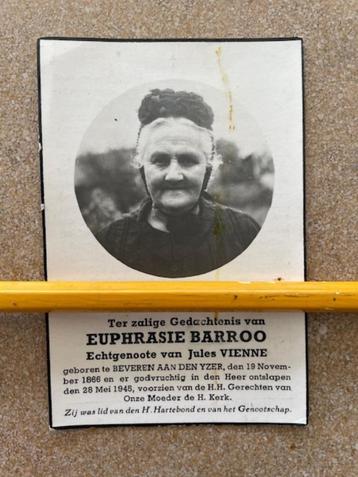 Ter zalige Gedachtenis van
EUPHRASIE BARROO
Echtgenoote van Jules VIENNE
geboren te BEVEREN AAN DEN YZER, den 19 Novem-
ber 1866 en er godvruchtig in den Heer ontslapen
den 28 Mei 1945, voorzien van de H.H. Gerechten van
Onze Moeder de H. Kerk.
Zij was lid van den H. Hartebond en van het Genootschap.